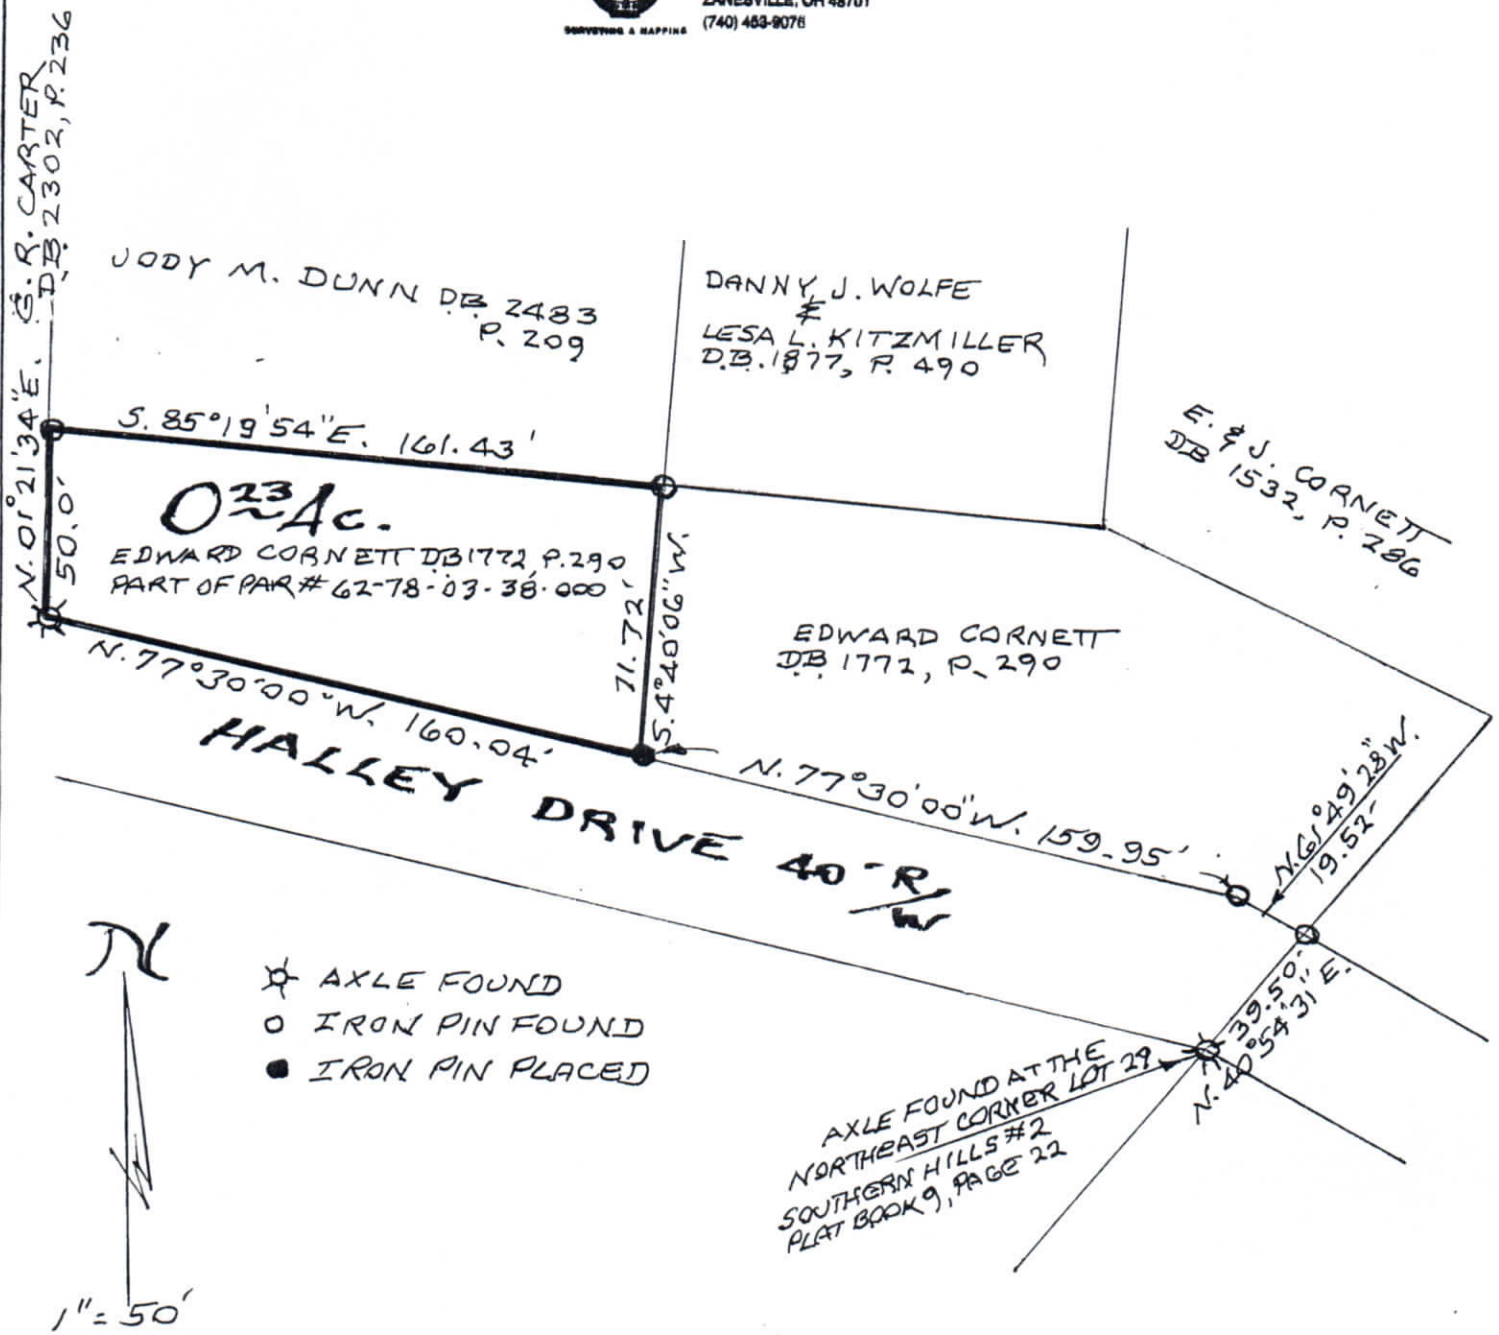 ZANESVILLE, OH 43701
(740) 453-9076
SURVEYING & MAPPING
R. CARTER
D.B. 2302, P. 236
JODY M. DUNN D.B. 2483
P. 209
DANNY J. WOLFE
&
LESA L. KITZMILLER
D.B. 1877, P. 490
E. & J. CORNETT
DB 1532, P. 286
N. 01°21'34"E.
50.0'
S. 85°19'54"E. 161.43'
0 23 Ac.
EDWARD CORNETT DB 1772, P. 290
PART OF PAR# 62-78-03-38-000
71.72'
S. 4°40'06"W.
EDWARD CORNETT
D.B. 1772, P. 290
N. 77°30'00"W. 160.04'
HALLEY DRIVE 40' R/W
N. 77°30'00"W. 159.95'
N. 61°49'28"W.
19.52'
39.50'
N. 40°54'31"E.
N
AXLE FOUND
IRON PIN FOUND
IRON PIN PLACED
AXLE FOUND AT THE
NORTHEAST CORNER LOT 29
SOUTHERN HILLS #2
PLAT BOOK 9, PAGE 22
1"= 50'